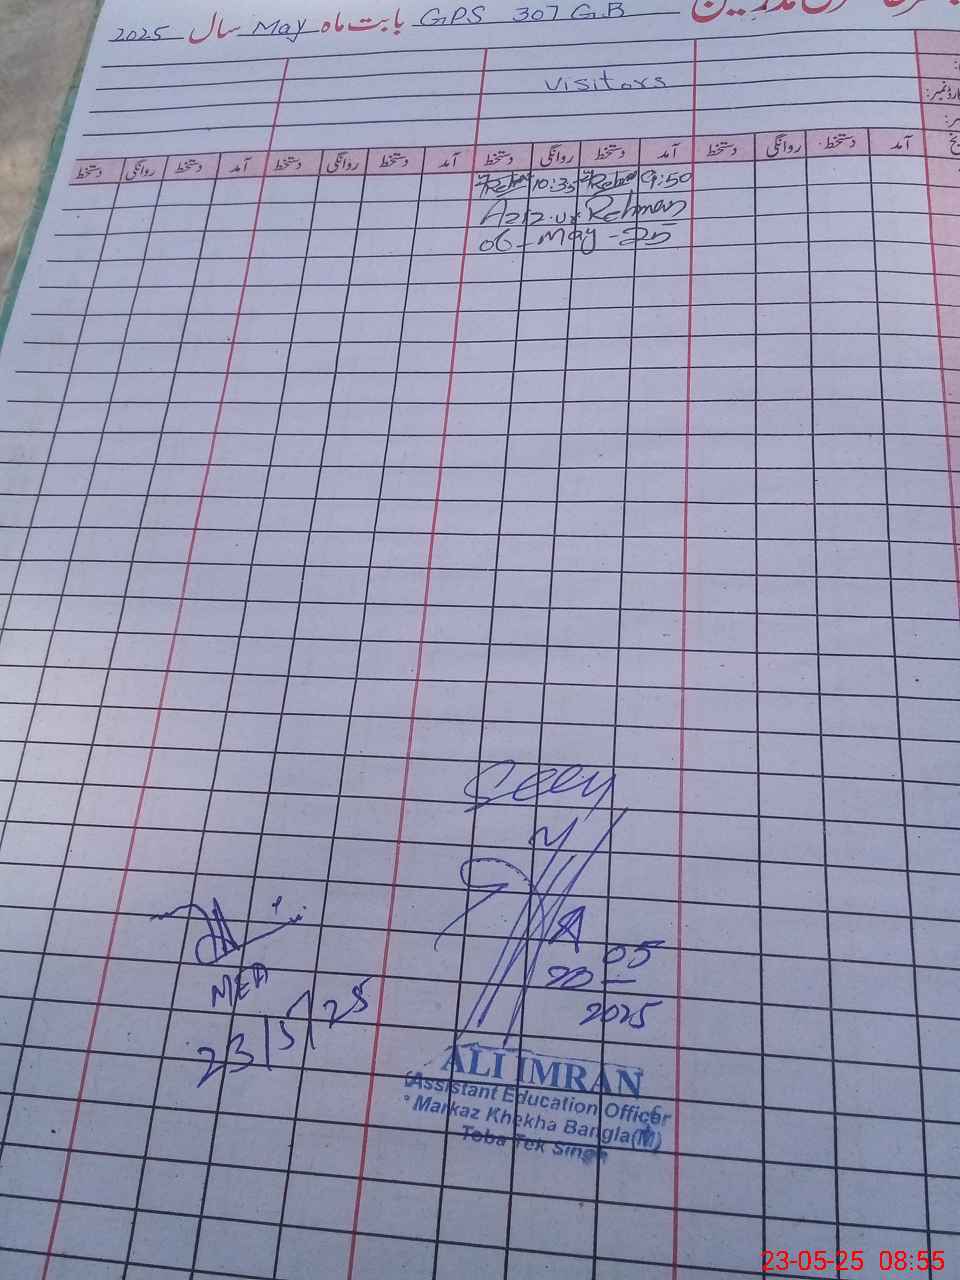 بابت ماہ GPS 307 GB May سال 2025
Visitors
آمد دستخط روانگی دستخط آمد دستخط روانگی دستخط آمد دستخط روانگی دستخط آمد دستخط روانگی دستخط
9:50 Rehman 10:35 Rehman
Aziz-ur-Rehman
06-May-25
Seen
05
20 -
2025
MEA
23/5/25
ALI IMRAN
Assistant Education Officer
Markaz Khekha Bangla(M)
Toba Tek Singh
23-05-25 08:55